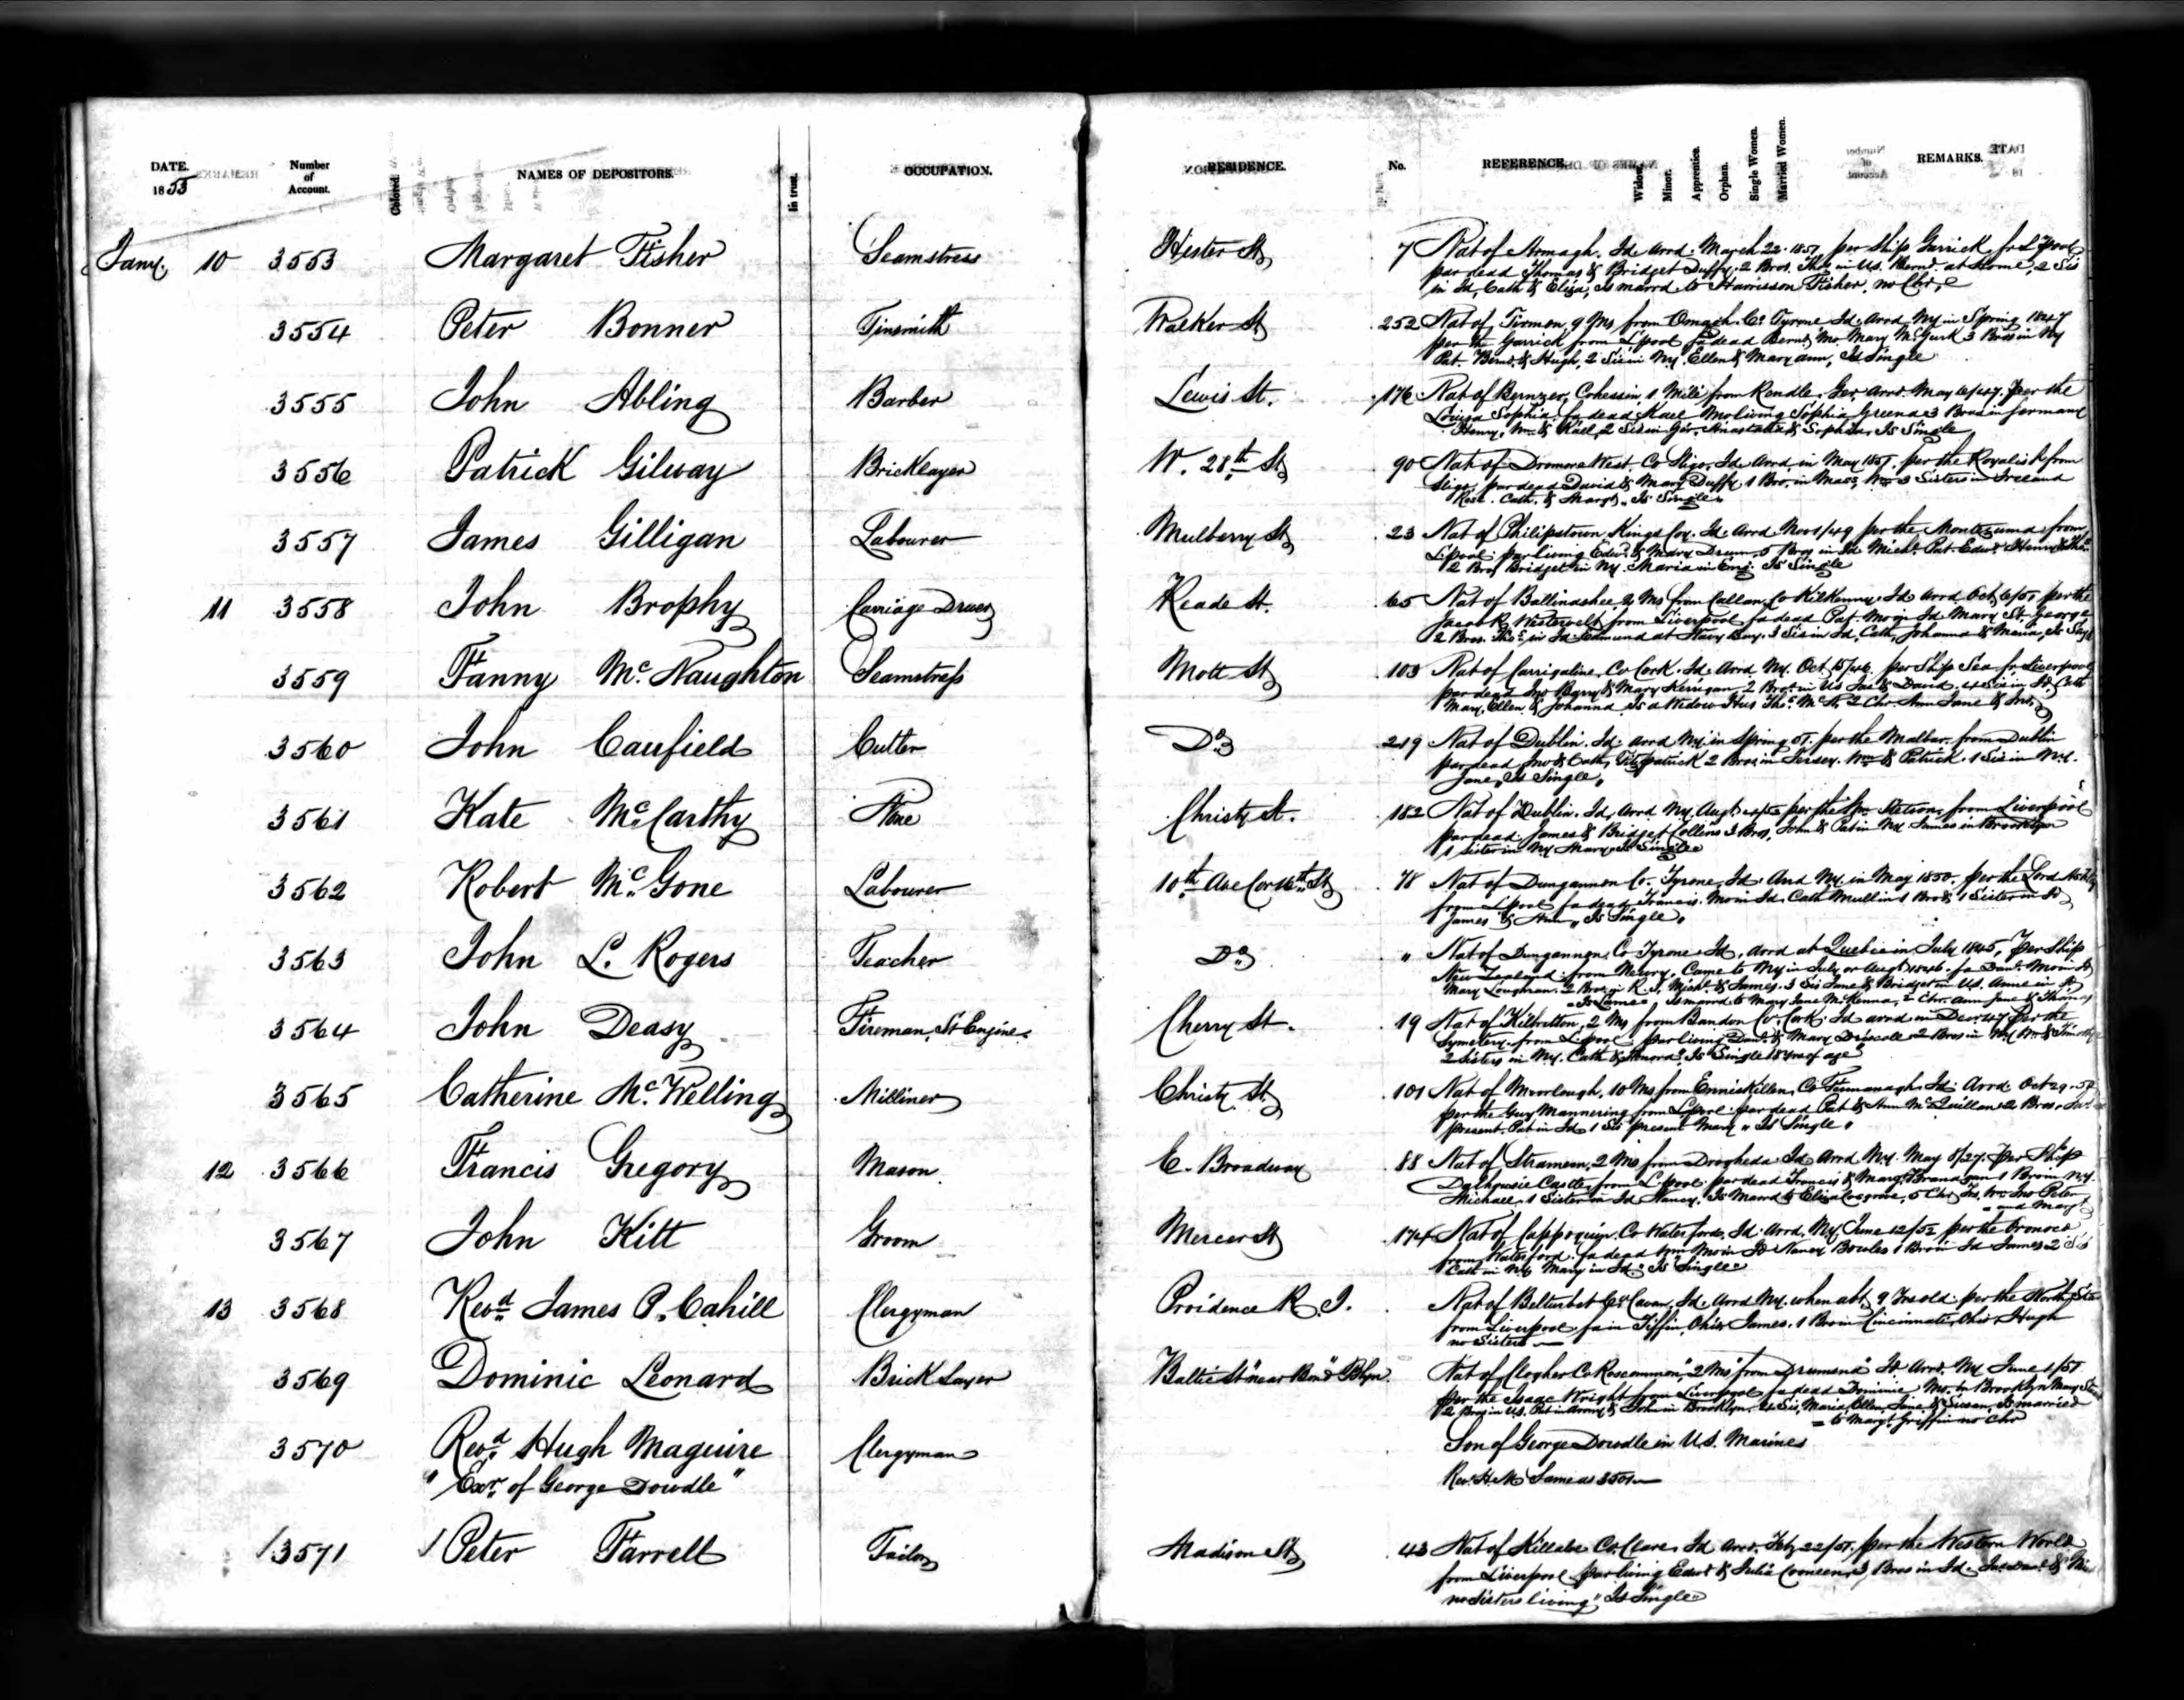 DATE. Number of Account. Colored. NAMES OF DEPOSITORS. In trust. OCCUPATION. RESIDENCE. No. REFERENCE. Widow. Minor. Apprentice. Orphan. Single Women. Married Women. REMARKS.
1853
Jany. 10 3553 Margaret Fisher Seamstress Hester St 7 Nat of Armagh. Id. Arrd. March 22. 1851 per Ship Garrick fr L'pool
par dead Thomas & Bridget Duffy. 2 Bros. Thos. in US. Bernd. at Home, 2 Sis
in Id, Cath & Eliza, Is marrd to Harrisson Fisher, no Chr,
3554 Peter Bonner Tinsmith Walker St 252 Nat of Tirmon, 9 Ms from Omagh. Co Tyrone Id. Arrd. Ny in Spring 1847
per the Garrick from L'pool fa dead Bernd, Mo. Mary McGurk 3 Bros in Ny
Pat. Bernd. & Hugh, 2 Sis in Ny. Ellen & Mary ann, Is Single
3555 John Abling Barber Lewis St. 176 Nat of Cohessin 1 Mile from Ger. Arrd. May 6/47. per the
Louisa Sophia. fa dead Kael Mo living Sophia Greena 3 Bros in Germany
Henry, Wm. & Kael, 2 Sis in Ger. & Sophia. Is Single
3556 Patrick Gilway Bricklayer W. 28th St 90 Nat of Dromore West. Co Sligo. Id. Arrd. in May 1851. per the Royalist from
Sligo, par dead David & Mary Duffy 1 Bro. in Mass, Wm 3 Sisters in Ireland
Rose. Cath. & Margt. Is Single
3557 James Gilligan Labourer Mulberry St 23 Nat of Philipstown, Kings Co. Id. Arrd. Nov 1/49 per the Montezuma from
L'pool. par living Edwd. & Mary Drum. 5 Bros in Id. Michl. Pat. Edwd. Henry & Thos.
2 Bridget in Ny. Maria in Eng. Is Single
11 3558 John Brophy Carriage Driver Reade St. 65 Nat of Ballinashee 2 Ms from Callan, Co Kilkenny. Id. Arrd. Oct 6/51 per the
Jacob R. Westervelt from Liverpool fa dead Pat. Mo in Id. Mary St. George
2 Bros. Thos. in Id. Edmund at Navy Bay. 3 Sis in Id, Cath, Johanna & Maria, Is Sing
3559 Fanny Mc. Naughton Seamstress Mott St 103 Nat of Carrigaline, Co Cork. Id. Arrd. Ny. Oct 15/46. per Ship Sea fr Liverpool
par dead Jno Barry & Mary Kerrigan, 2 Bros in US Jas & David. 4 Sis in Id, Cath
Mary, Ellen, & Johanna Is a Widow Hus Thos. McN, 2 Chr. Ann Jane & Jno
3560 John Caufield Cutler Do 219 Nat of Dublin. Id. arrd Ny in Spring 51. per the Malbar. from Dublin
par dead Jno & Cath. Fitzpatrick 2 Bros in Jersey. Wm & Patrick. 1 Sis in N.Y.
Jane, Is Single,
3561 Kate McCarthy None Christy St. 182 Nat of Dublin. Id, Arrd Ny, Augt per the Wm Stetson, from Liverpool
par dead James & Bridget Collins 3 Bros, John & Pat in Ny James in Brooklyn
1 sister in Ny Mary. Is Single
3562 Robert McGone Labourer 10th Ave Cor 16th St 78 Nat of Dungannon Co. Tyrone, Id. Arrd Ny. in May 1850. per the Lord
from L'pool fa dead, Francis. Mo in Id. Cath Mullin 1 Bro & 1 Sister in Id
James & Ann, Is Single,
3563 John L. Rogers Teacher Do " Nat of Dungannon, Co Tyrone Id, arrd at Quebec in July 1845, per Ship
New Zealand from Newry. Came to Ny in July or Augt 1846. fa Danl. Mo in Id
Mary Loughran. 2 Bros in R.I. Michl. & James. 3 Sis Jane & Bridget in US. Anne in Id
Is Lame, Is marrd to Mary Jane McKenna, 2 Chr. Ann Jane & Thomas
3564 John Deasy Fireman, St Engine. Cherry St. 19 Nat of Kilbritton, 2 Ms from Bandon Co Cork. Id arrd in Dec. 47 per the
Symetery. from L.pool. par living Danl. & Mary Driscole 2 Bros in Ny Wm &
2 Sisters in Ny. Cath & Honora. Is Single 18 yrs of age
3565 Catherine Mc. Welling Milliner Christy St 101 Nat of Moorlough, 10 Ms from Enniskillen, Co Fermanagh. Id. Arrd. Oct 29.
per the Guy Mannering from L'pool. par dead Pat & Ann McQuillan 2 Bros.
present. Pat in Id 1 Sis present Mary. Is Single.
12 3566 Francis Gregory Mason E. Broadway 88 Nat of 2 Ms from Drogheda Id Arrd Ny. May 5/27. Per Ship
Dalhousie Castle, from L'pool. par dead Francis & Mary Branagan 1 Bro in ny.
Michael. 1 Sister in Id Nancy. Is Marrd to Eliza Cosgrove, 5 Chr. Wm. Jno Peter
and Mary
3567 John Kitt Groom Mercer St 174 Nat of Cappoquin, Co Waterford, Id. Arrd. Ny June 12/52 per the Oronoco
from Waterford. fa dead Wm Mo in Id Nancy Bowles 1 Bro in Id James 2 Sis
Cath in Ny Mary in Id. Is Single
13 3568 Revd. James P. Cahill Clergyman Providence R. I. Nat of Belturbet Co Cavan, Id. Arrd Ny. when abt 9 Yrs old. per the North Star
from Liverpool. fa in Tiffin, Ohio James. 1 Bro in Cincinnati, Ohio, Hugh
no Sisters
3569 Dominic Leonard Brick Layer Baltic St near Bond Bklyn Nat of Clogher Co Roscommon 2 Ms from Id Arrd. Ny June 1/51
per the Isaac Wright from Liverpool fa dead Dominic, Mo. in Brooklyn Mary
2 Bros in U.S. Pat in Army & John in Brooklyn. 4 Sis, Maria, Ellen, Jane & Susan, Is married
to Margt. Griffin no Chr
3570 Revd. Hugh Maguire Clergyman Son of George Dowdle in U.S. Marines
" Exr. of George Dowdle " Rev. H.M. Same as 3501
13571 Peter Farrell Tailor Madison St 43 Nat of Co Clare. Id Arrd. Feb 22/51. per the Western World
from Liverpool par living Edwd & Julia 3 Bros in Id. Jas. Danl. &
no sisters living. Is Single